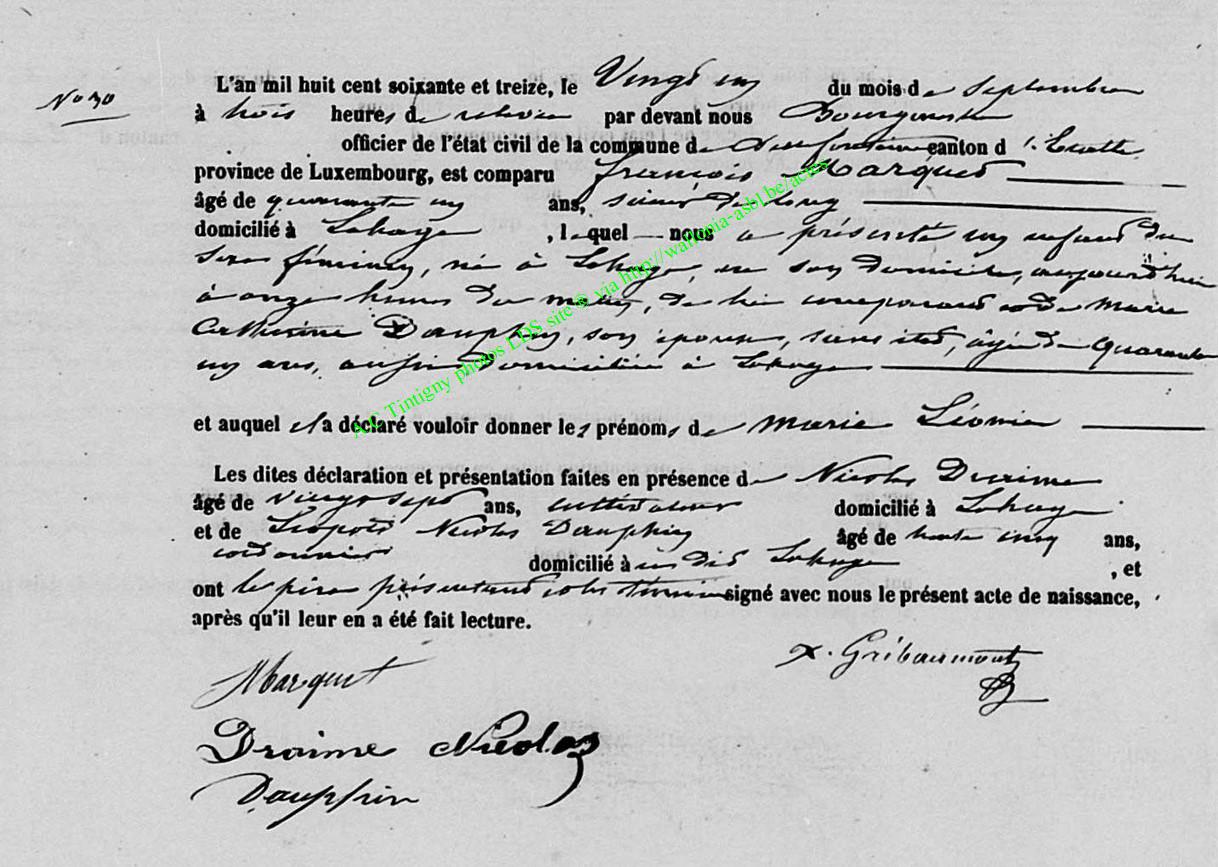 No 30
L'an mil huit cent soixante et treize, le Vingt un du mois de Septembre
à trois heures de relevée par devant nous Bourgmestre
officier de l'état civil de la commune de canton d'
province de Luxembourg, est comparu françois Marquet
âgé de quarante un ans, scieur de long
domicilié à Lahage, lequel nous a présenté un enfant du
sexe féminin, né à Lahage, en son domicile, aujourd'hui
à onze heures du matin, de lui comparant et de Marie
Catherine Dauphin, son épouse, sans état, âgée de Quarante
un ans, aussi domiciliée à Lahage
et auquel il a déclaré vouloir donner les prénoms de Marie Léonie
Les dites déclaration et présentation faites en présence de Nicolas Draime
âgé de vingt sept ans, cultivateur domicilié à Lahage
et de Léopold Nicolas Dauphin âgé de trente cinq ans,
cordonnier domicilié à au dit Lahage, et
ont le père présentant et les témoins signé avec nous le présent acte de naissance,
après qu'il leur en a été fait lecture.
Marquet
x. Gribaumont
Draime Nicolas
Dauphin
AC Tintigny photos LDS site ® via http://wallonia-asbl.be/actes